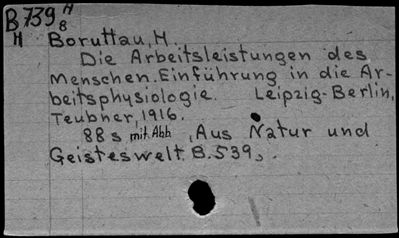 B 739 H
8
H Boruttau, H.
Die Arbeitsleistungen des
Menschen. Einführung in die Ar-
beitsphysiologie. Leipzig-Berlin,
Teubner, 1916.
88 s. mit Abb. , Aus Natur und
Geisteswelt. B. 539,